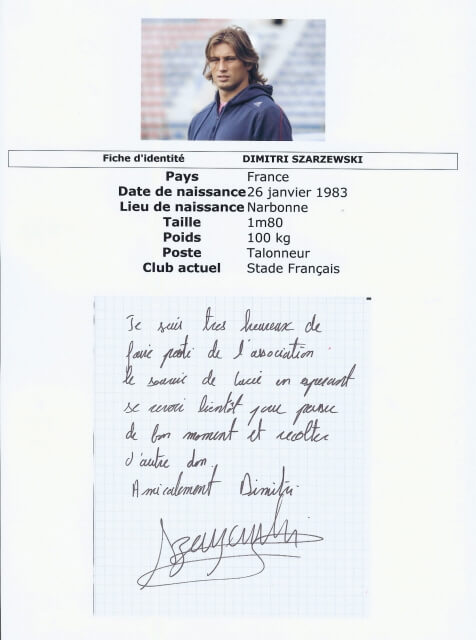 Fiche d'identité DIMITRI SZARZEWSKI
Pays France
Date de naissance 26 janvier 1983
Lieu de naissance Narbonne
Taille 1m80
Poids 100 kg
Poste Talonneur
Club actuel Stade Français
Je suis très heureux de
faire parti de l'association
le sourire de Lucie en esperant
se revoir bientôt pour passer
de bon moment et récolter
d'autre don,
Amicalement, Dimitri